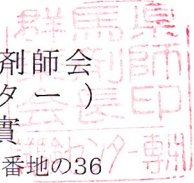 剤師会
ター)
實
番地の36
群馬県
剤師
会長印
センター専用